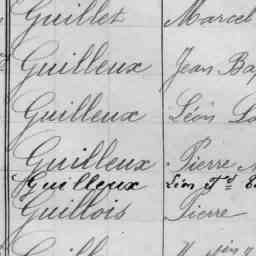 Guillet Marcel
Guilleux Jean Bap
Guilleux Léon
Guilleux Pierre
Guilleux Léon Fd
Guillois Pierre